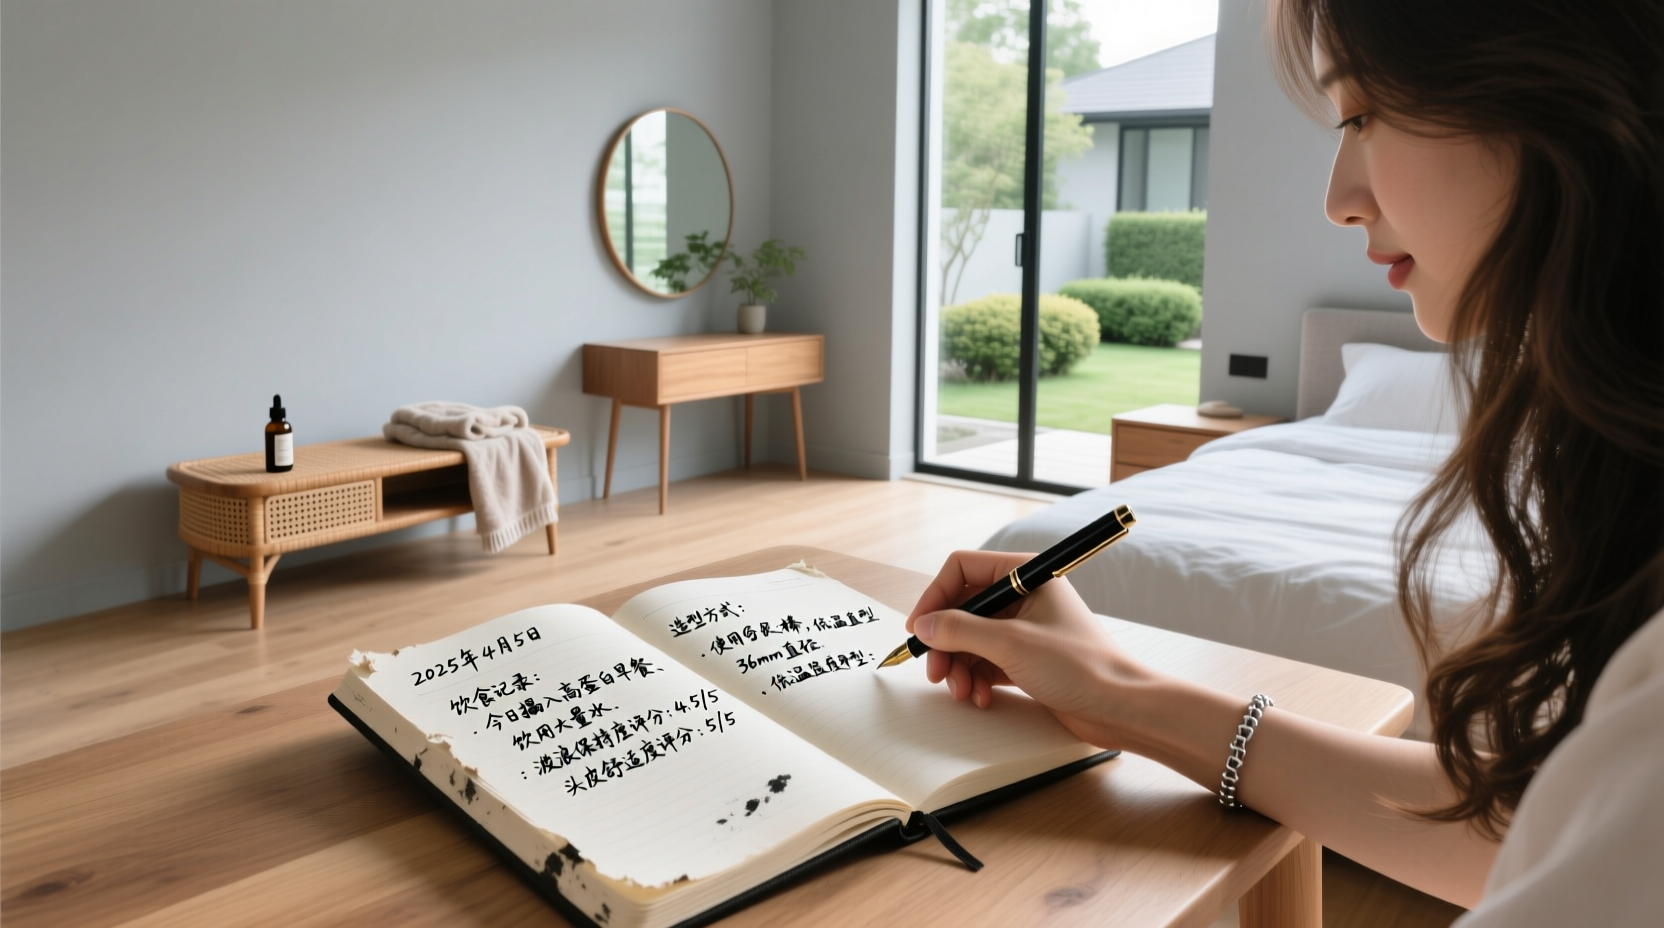 2025年4月5日
饮食记录:
· 今日摄入高蛋白早餐、
饮用大量水.
: 波浪保持度评分: 4.5/5
头皮舒适度评分: 5/5
造型方式:
· 使用 棒, 低温 型
36mm直径.
· 低温 型: